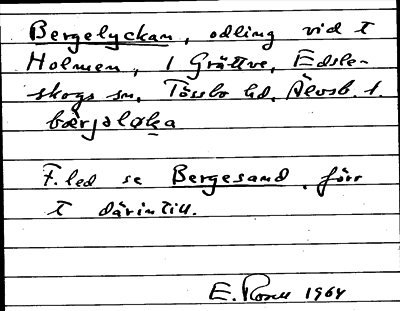 Bergelyckan, odling vid t
Holmen, 1 Grättve, Edsle-
skogs sn, Tössbo hd, Älvsb. l.
bærjəløka
F. led se Bergesand, förr
t därintill.
E. Rosell 1964